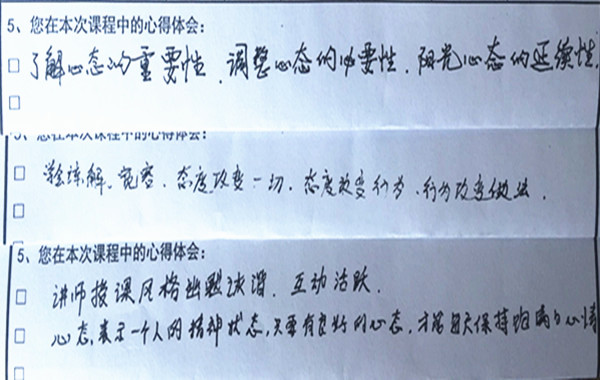 5、您在本次课程中的心得体会:
□ 了解心态的重要性、调整心态的必要性、阳光心态的延续性.
□
5、您在本次课程中的心得体会:
□ 学会谅解、宽容、态度改变一切,态度改变行为、行为改变做法.
□
□
5、您在本次课程中的心得体会:
□ 讲师授课风格幽默诙谐、互动活跃.
□ 心态,表示一个人的精神状态,只要有良好的心态,才能每天保持饱满的心情
□